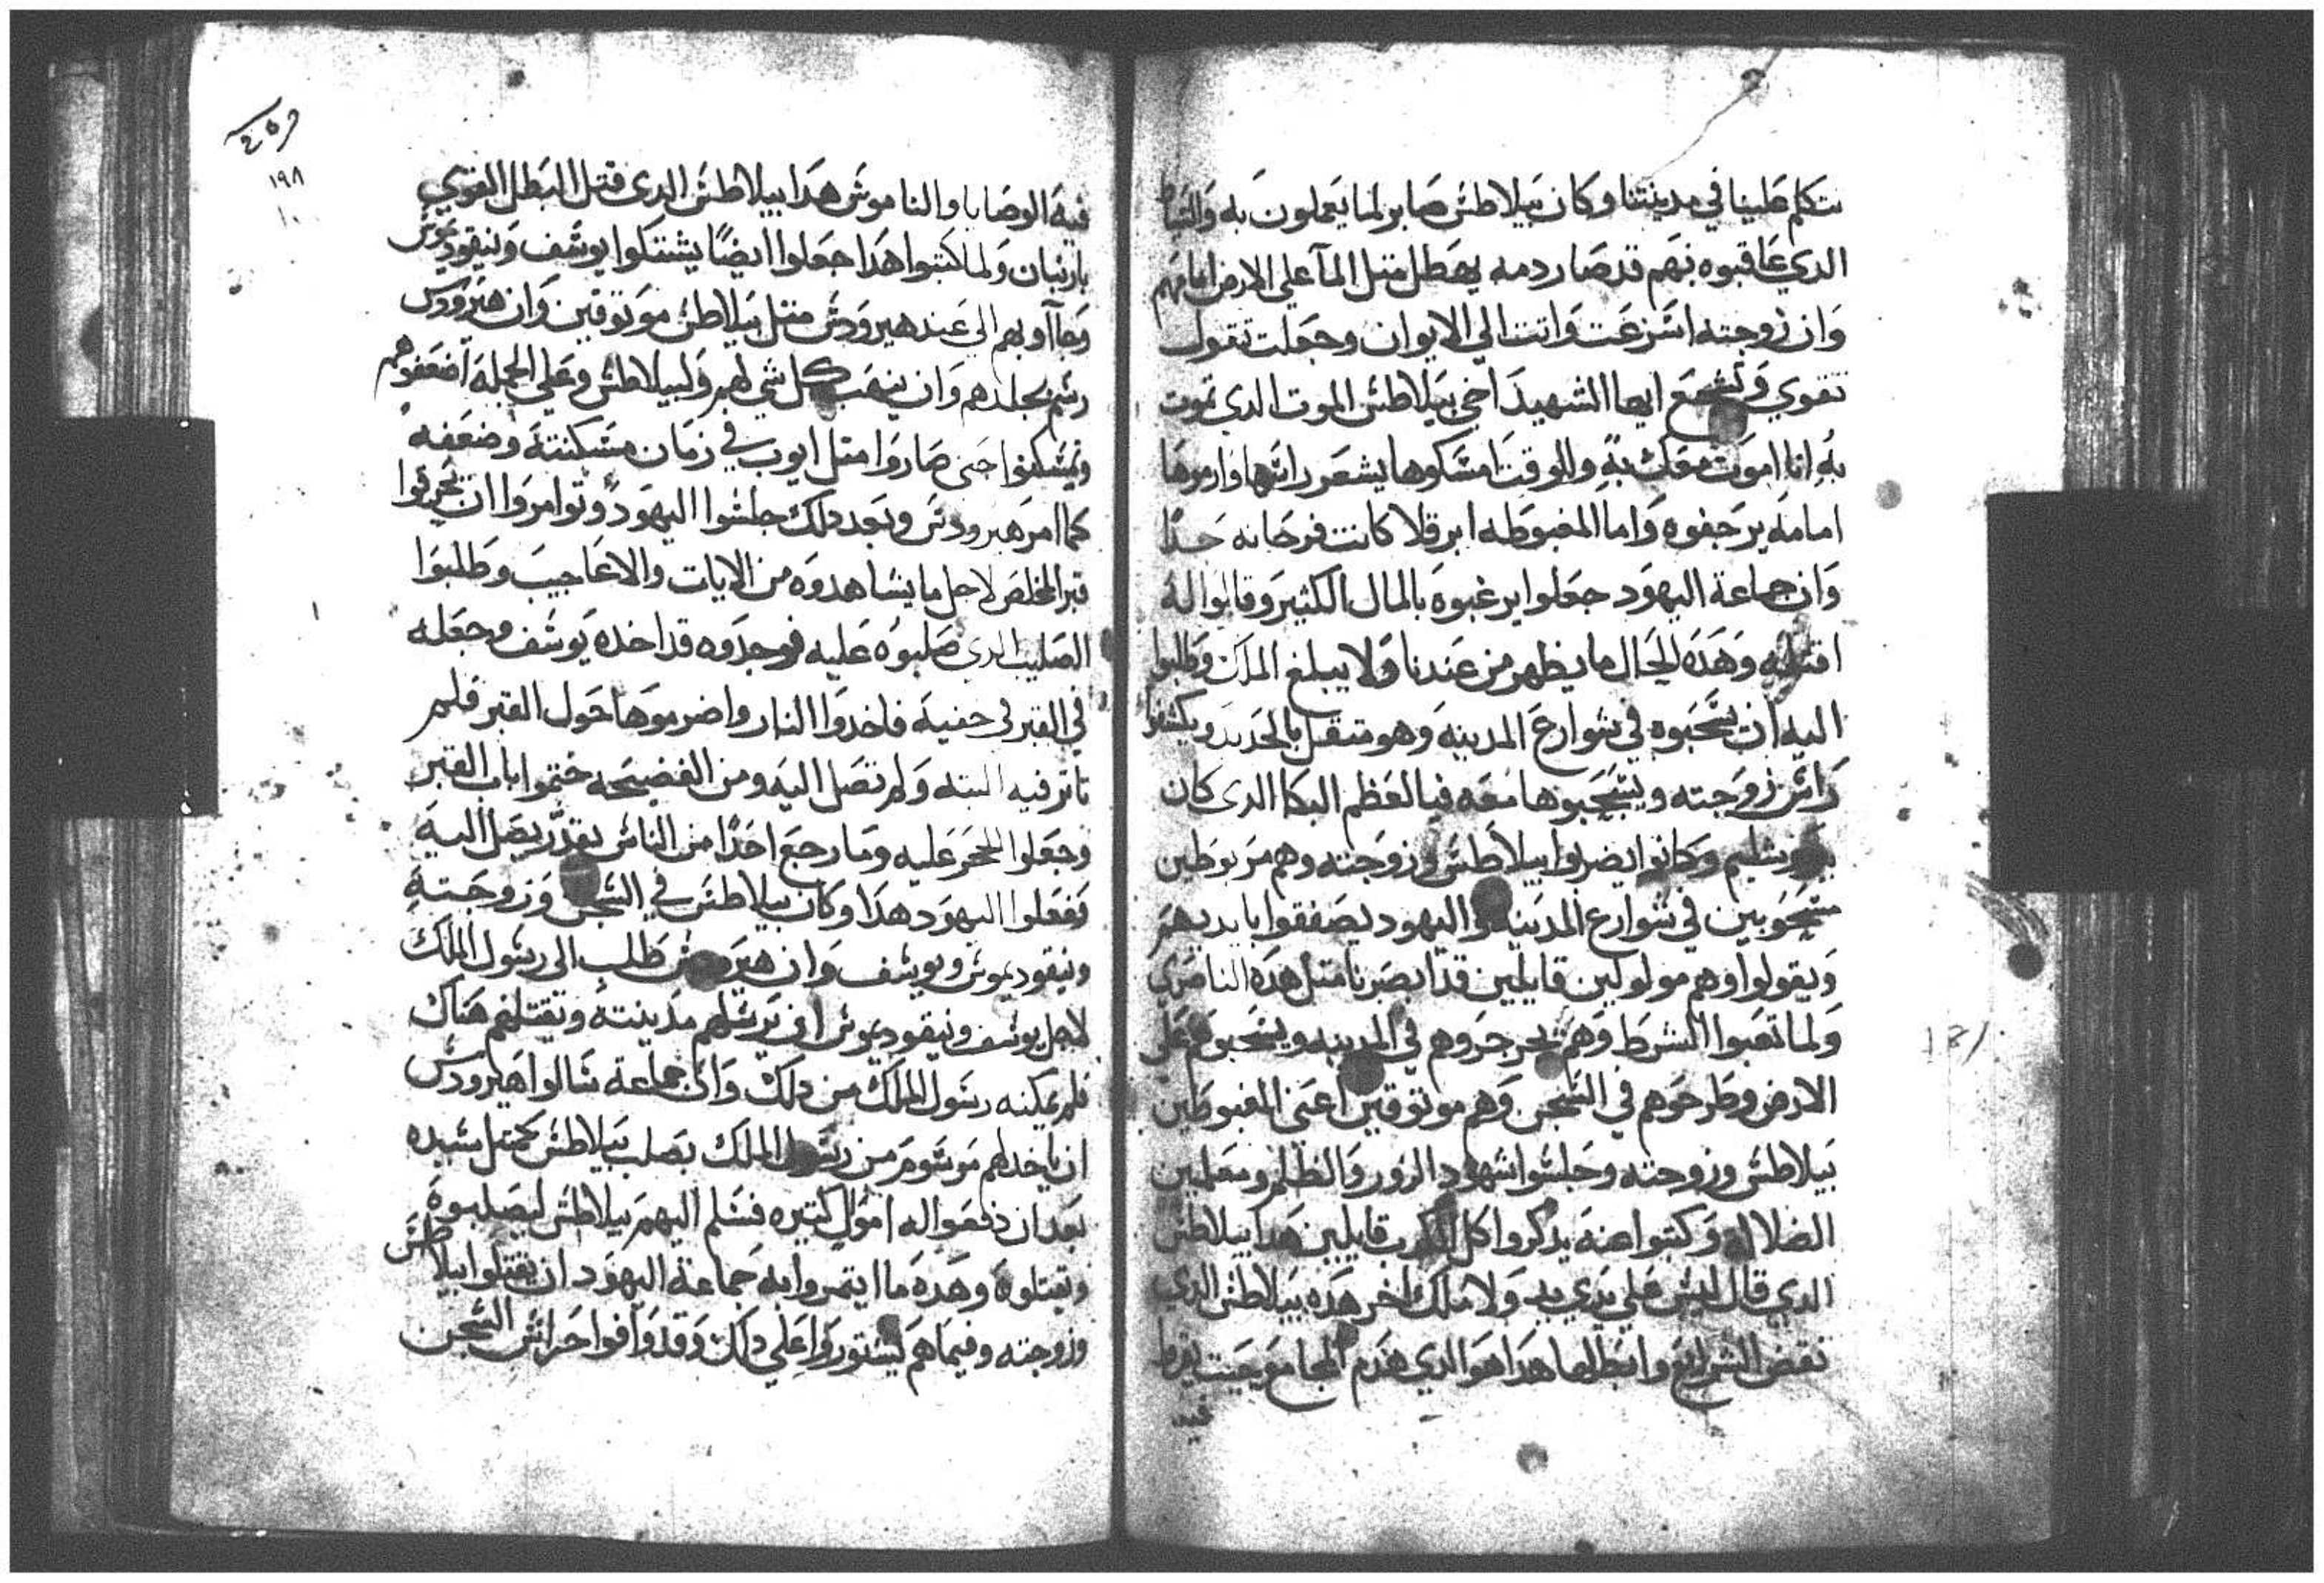 نتكلم طينا في مدينتنا وكان بيلاطس صابر لما يعملون به
الدي عاقبوه بهم قد صار دمه يهطل متل المآ علي الارض امامهم
وان زوجته اسرعت واتت الي الايوان وجعلت تقول
تقوي وتشجع ايها الشهيد اخي بيلاطس الموت الدي تموت
به انا اموت معك به وللوقت امسكوها بشعر راسها وارموها
امامه يرجفوه واما المغبوطه ابرقلا كانت فرحانه جدا
وان جماعة اليهود جعلوا يرغبوه بالمال الكتير وقالوا له
اقتله وهده الحال ما يظهر من عندنا ولا يبلغ الملك وطلبوا
اليه ان يسحبوه في شوارع المدينه وهو متقل بالحديد ويكشفوا
راس زوجته ويسحبوها معه فيا لعظم البكا الدي كان
بيروشليم وكانوا يضربوا بيلاطس وزوجته وهم مربوطين
مسحوبين في شوارع المدينه واليهود يصفقوا بايديهم
ويقولوا وهم مولولين قايلين قد ابصرنا متل هده الناصري
ولما تعبوا الشرط وهم بجرجروهم في المدينه ويسحبوهم على
الارض وطرحوهم في السجن وهم موتوقين اعني المغبوطين
بيلاطس وزوجته وجلسوا شهود الزور والظلم ومعلمين
الضلاله وكتبوا عنه يدكروا كل الكدب قايلين هدا بيلاطس
الدي قال ليس علي يدي ولا ملك اخر هده بيلاطس الدي
نقض الشرايع وابطلها هدا هو الدي هدم المجامع حيت يقرا
فيه
١٩٨
فيه الوصايا والناموس هدا بيلاطس الدي قتل البطل القوي
بارنبان ولما كتبوا هدا جعلوا ايضًا يشتكوا يوسف ونيقوديموس
وجآاو بهم الي عند هيرودس متل بيلاطس موتوقين وان هيرودس
رسم بجلدهم وان ينهب كل شي لهم ولبيلاطس وعلي الجمله اضعفوهم
وتمسكنوا حتى صاروا متل ايوب في زمان مسكنته وضعفه
كما امر هيرودس وبعد دلك جلسوا اليهود وتوامروا ان يحرقوا
قبر المخلص لاجل ما يشاهدوه من الايات والاعاجيب وطلبوا
الصليب الدي صلبوه عليه فوجدوه قد اخده يوسف وجعله
في القبر في حنيه فاخدوا النار واضرموها حول القبر فلم
تاتر فيه البته ولم تصل اليه ومن الفضيحه ختموا باب القبر
وجعلوا الحجر عليه وما رجع احدًا من الناس يقدر يصل اليه
ففعلوا اليهود هدا وكان بيلاطس في السجن وزوجته
ونيقوديموس ويوسف وان هيرودس طلب الى رسول الملك
لاجل يوسف ونيقوديموس ان يرسلهم مدينته وتقتلهم هناك
فلم يمكنه رسول الملك من دلك وان جماعة سالوا هيرودس
ان ياخد لهم مرسوم من رسول الملك بصلب بيلاطس كمتل سيده
بعد ان دفعوا له اموال كتيره فسلم اليهم بيلاطس ليصلبوه
ويقتلوه وهده ما ايتمروا به جماعة اليهود ان يقتلوا بيلاطس
وزوجته وفيما هم يستوروا علي دلك وقد وافوا حراس السجن